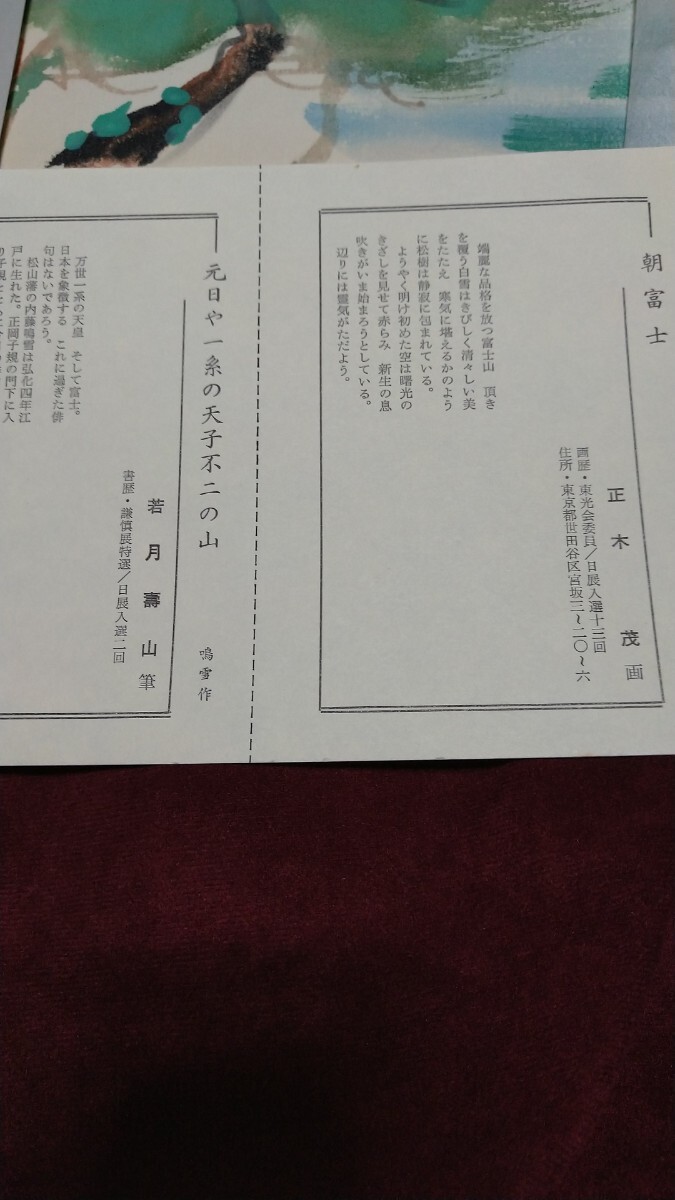 朝富士
正木 茂 画
画歴・東光会委員/日展入選十三回
住所・東京都世田谷区宮坂三～二〇～六
端麗な品格を放つ富士山 頂き
を覆う白雪はきびしく清々しい美
をたたえ 寒気に堪えるかのよう
に松樹は静寂に包まれている。
ようやく明け初めた空は曙光の
きざしを見せて赤らみ 新生の息
吹きがいま始まろうとしている。
辺りには霊気がただよう。
元日や一系の天子不二の山
鳴雪作
若月壽山筆
書歴・謙慎展特選/日展入選二回
万世一系の天皇 そして富士。
日本を象徴する これに過ぎた俳
句はないであろう。
松山藩の内藤鳴雪は弘化四年江
戸に生れた。正岡子規の門下に入